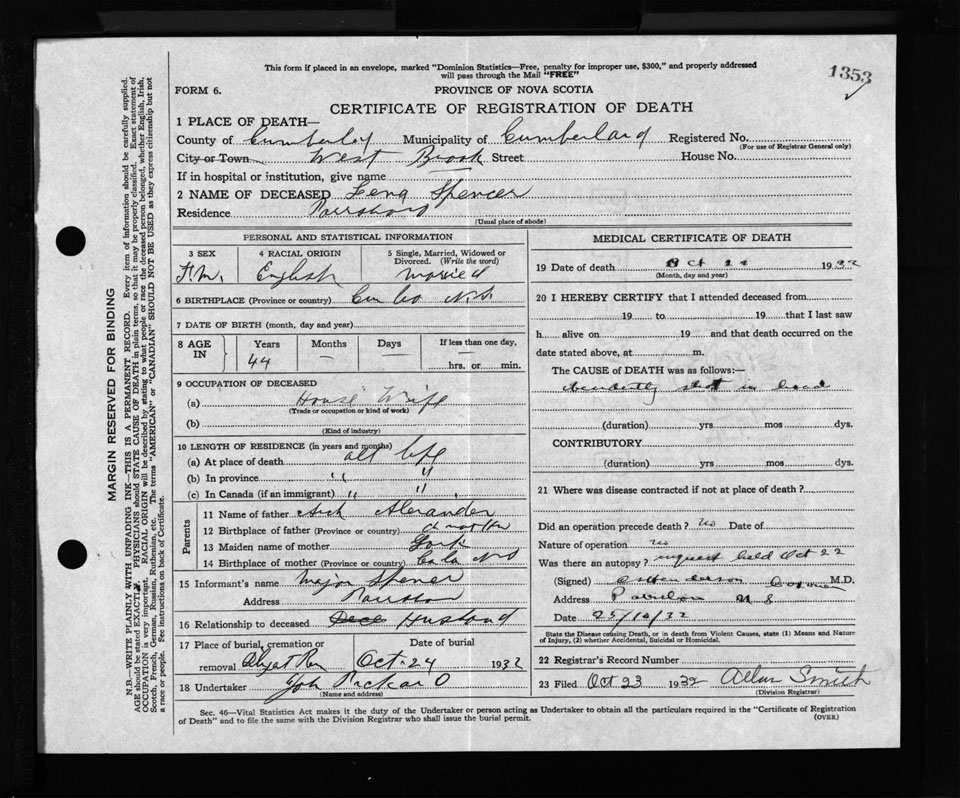 This form if placed in an envelope, marked "Dominion Statistics—Free, penalty for improper use, $300," and properly addressed
will pass through the Mail "FREE"
1353
FORM 6.
PROVINCE OF NOVA SCOTIA
CERTIFICATE OF REGISTRATION OF DEATH
1 PLACE OF DEATH—
County of Cumberland Municipality of Cumberland Registered No.
(For use of Registrar General only)
City or Town West Brook Street House No.
If in hospital or institution, give name
2 NAME OF DECEASED Lena Spencer
Residence Parrsboro
(Usual place of abode)
PERSONAL AND STATISTICAL INFORMATION
3 SEX 4 RACIAL ORIGIN 5 Single, Married, Widowed or Divorced. (Write the word)
English Married
6 BIRTHPLACE (Province or country) N.S.
7 DATE OF BIRTH (month, day and year)
8 AGE IN Years Months Days If less than one day,
44 — — — hrs. or min.
9 OCCUPATION OF DECEASED
(a) House Wife
(Trade or occupation or kind of work)
(b)
(Kind of industry)
10 LENGTH OF RESIDENCE (in years and months)
(a) At place of death all life
(b) In province " "
(c) In Canada (if an immigrant) " "
Parents
11 Name of father Alexander
12 Birthplace of father (Province or country)
13 Maiden name of mother York
14 Birthplace of mother (Province or country)
15 Informant's name Major Spencer
Address Parrsboro
16 Relationship to deceased Husband
17 Place of burial, cremation or removal Date of burial
Oct. 24 1932
18 Undertaker Pickard
(Name and address)
MEDICAL CERTIFICATE OF DEATH
19 Date of death Oct 22 1932
(Month, day and year)
20 I HEREBY CERTIFY that I attended deceased from
19 to 19 that I last saw
h alive on 19 and that death occurred on the
date stated above, at m.
The CAUSE of DEATH was as follows:—
shot in head
(duration) yrs mos dys.
CONTRIBUTORY
(duration) yrs mos dys.
21 Where was disease contracted if not at place of death?
Did an operation precede death? No Date of
Nature of operation no
Was there an autopsy? inquest held Oct 22
(Signed) Henderson Coroner M.D.
Address Parrsboro N S
Date 25/10/32
State the Disease causing Death, or in death from Violent Causes, state (1) Means and Nature
of Injury, (2) whether Accidental, Suicidal or Homicidal.
22 Registrar's Record Number
23 Filed Oct 23 1932 Allan Smith
(Division Registrar)
Sec. 46—Vital Statistics Act makes it the duty of the Undertaker or person acting as Undertaker to obtain all the particulars required in the "Certificate of Registration
of Death" and to file the same with the Division Registrar who shall issue the burial permit.
(OVER)
MARGIN RESERVED FOR BINDING
N.B.—WRITE PLAINLY WITH UNFADING INK—THIS IS A PERMANENT RECORD. Every item of information should be carefully supplied.
AGE should be stated EXACTLY. PHYSICIANS should STATE CAUSE OF DEATH in plain terms, so that it may be properly classified. Exact statement of
OCCUPATION is very important. RACIAL ORIGIN will be described by stating to what people or race the deceased person belonged, whether English, Irish,
Scotch, French, German, Russian, Ruthenian, etc. The terms "AMERICAN" or "CANADIAN" SHOULD NOT BE USED as they express citizenship but not
a race or people. See instructions on back of Certificate.